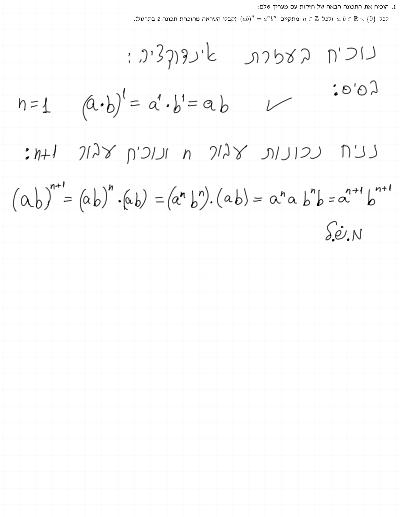 1. הוכיחו את התכונה הבאה של חזקות עם מעריך שלם:
לכל a,b ∈ R \ {0} ולכל n ∈ Z מתקיים (ab)ⁿ = aⁿbⁿ
נוכיח בעזרת אינדוקציה:
בסיס:
n=1 (a·b)¹ = a¹·b¹ = ab ✓
נניח נכונות עבור n ונוכיח עבור n+1:
(ab)ⁿ⁺¹ = (ab)ⁿ·(ab) = (aⁿbⁿ)·(ab) = aⁿa bⁿb = aⁿ⁺¹bⁿ⁺¹
מ.ש.ל